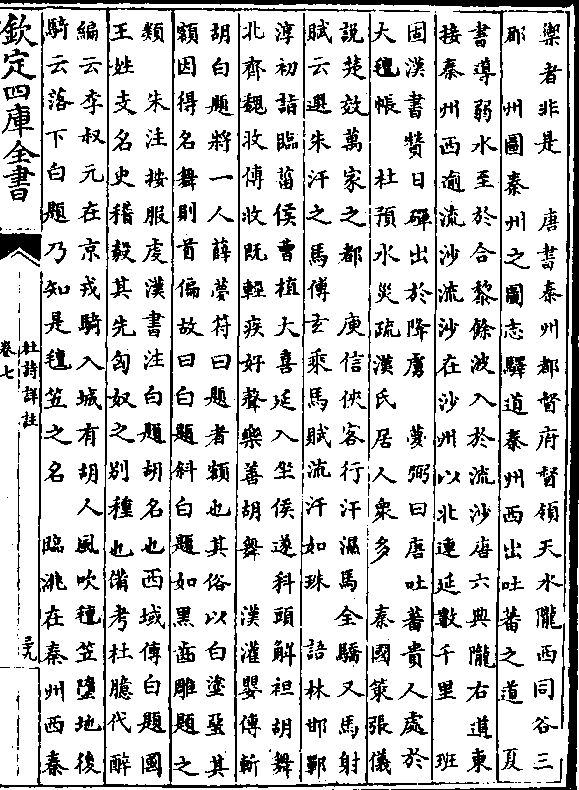 禦者非是　唐書秦州都督府督領天水隴西同谷三
郡　州圖秦州之圖志驛道秦州西出吐蕃之道　夏
書導弱水至於合黎餘波入於流沙唐六典隴右道東
接秦州西逾流沙流沙在沙州以北連延數千里　班
固漢書贊日磾出於降虜　夢弼曰唐吐蕃貴人處於
大氊帳　杜預水災疏漢氏居人衆多　秦國策張儀
說楚效萬家之都　庾信俠客行汗濕馬全驕又馬射
賦云選朱汗之馬傅玄乘馬賦流汗如珠　語林邯鄲
淳初詣臨菑侯曹植大喜延入坐侯遂科頭解袒胡舞
北齊魏收傳收既輕疾好聲樂善胡舞　漢灌嬰傳斬
胡白題將一人薛夢符曰題者額也其俗以白塗堊其
額因得名舞則首偏故曰白題斜白題如黑齒雕題之
類　朱注按服虔漢書注白題胡名也西域傳白題國
王姓支名史稽毅其先匈奴之別種也備考杜臆代醉
編云李叔元在京戎騎入城有胡人風吹氊笠墮地後
騎云落下白題乃知是氊笠之名　臨洮在秦州西秦
欽定四庫全書
杜詩詳註
卷七
三九